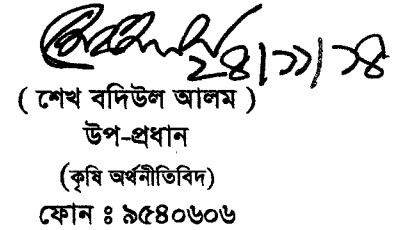 ২৪/১১/১৪
( শেখ বদিউল আলম )
উপ-প্রধান
(কৃষি অর্থনীতিবিদ)
ফোন ঃ ৯৫৪০৬০৬